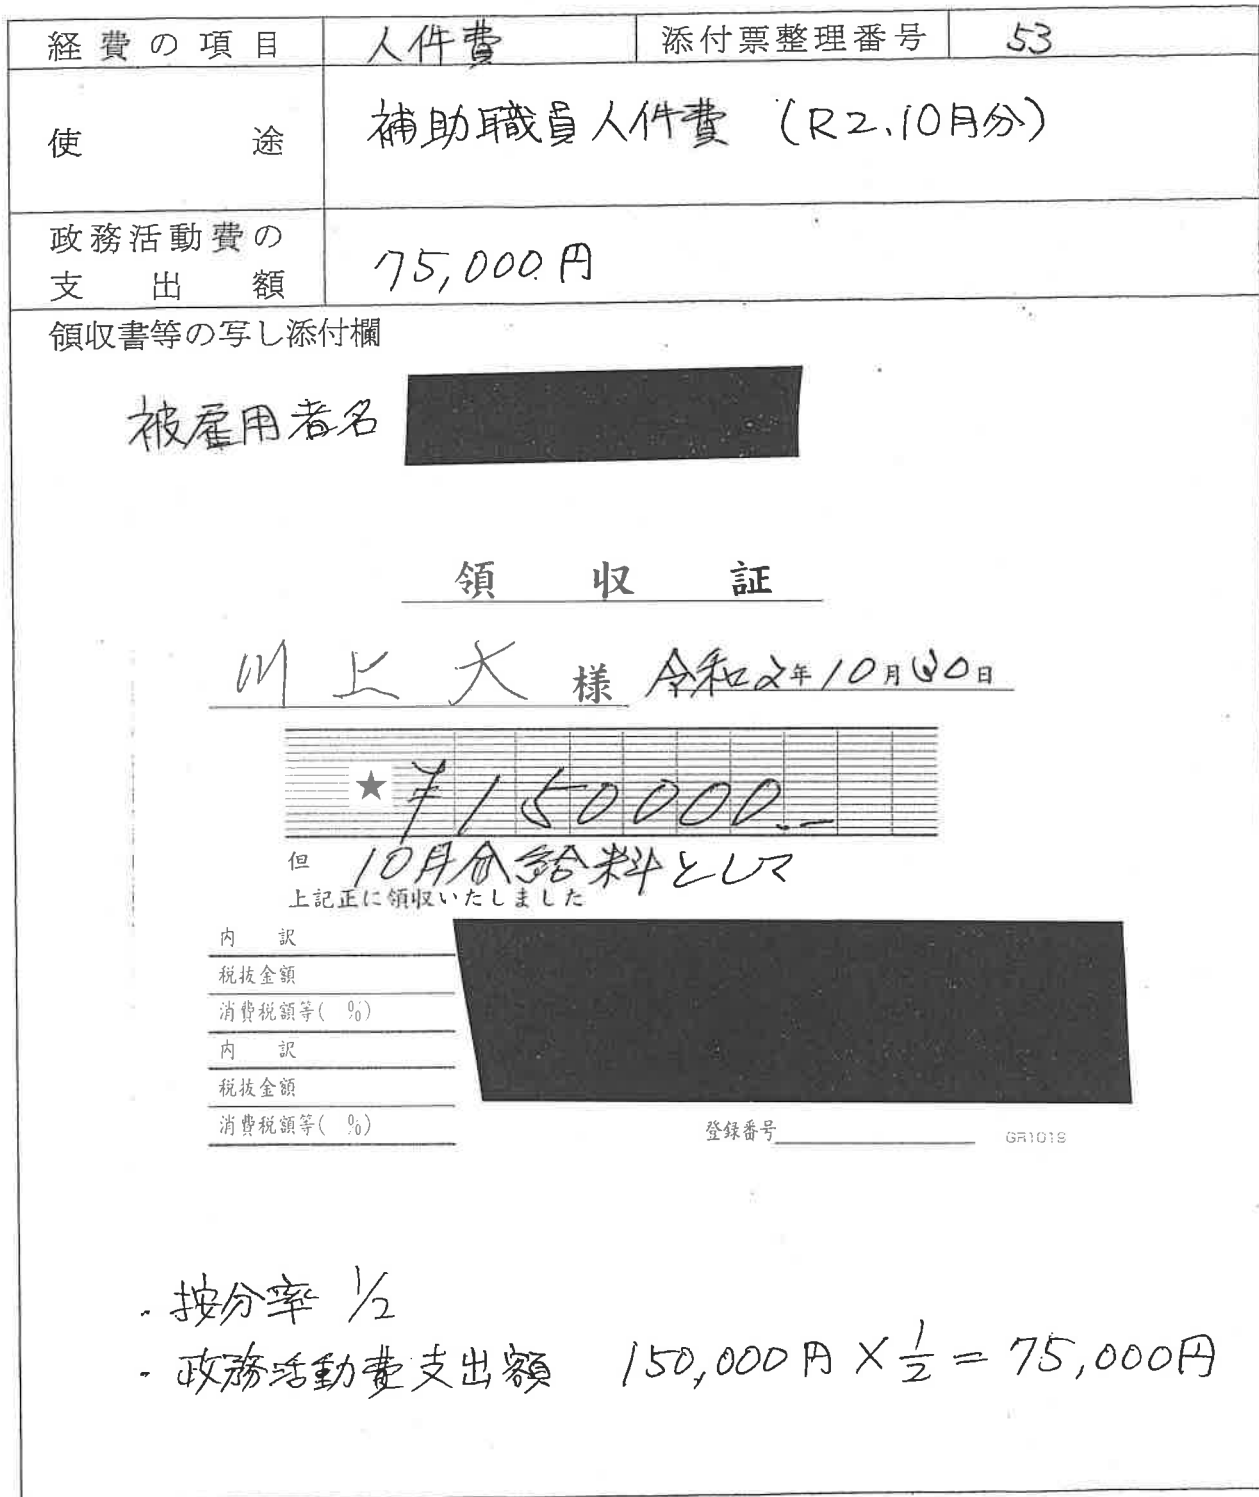 経費の項目 人件費 添付票整理番号 53
使途 補助職員人件費 (R2.10月分)
政務活動費の
支出額 75,000円
領収書等の写し添付欄
被雇用者名
領収証
川上大 様 令和2年10月30日
★ ¥150000.-
但 10月分給料として
上記正に領収いたしました
内訳
税抜金額
消費税額等( %)
内訳
税抜金額
消費税額等( %)
登録番号 GR1019
・按分率 1/2
・政務活動費支出額 150,000円×1/2=75,000円